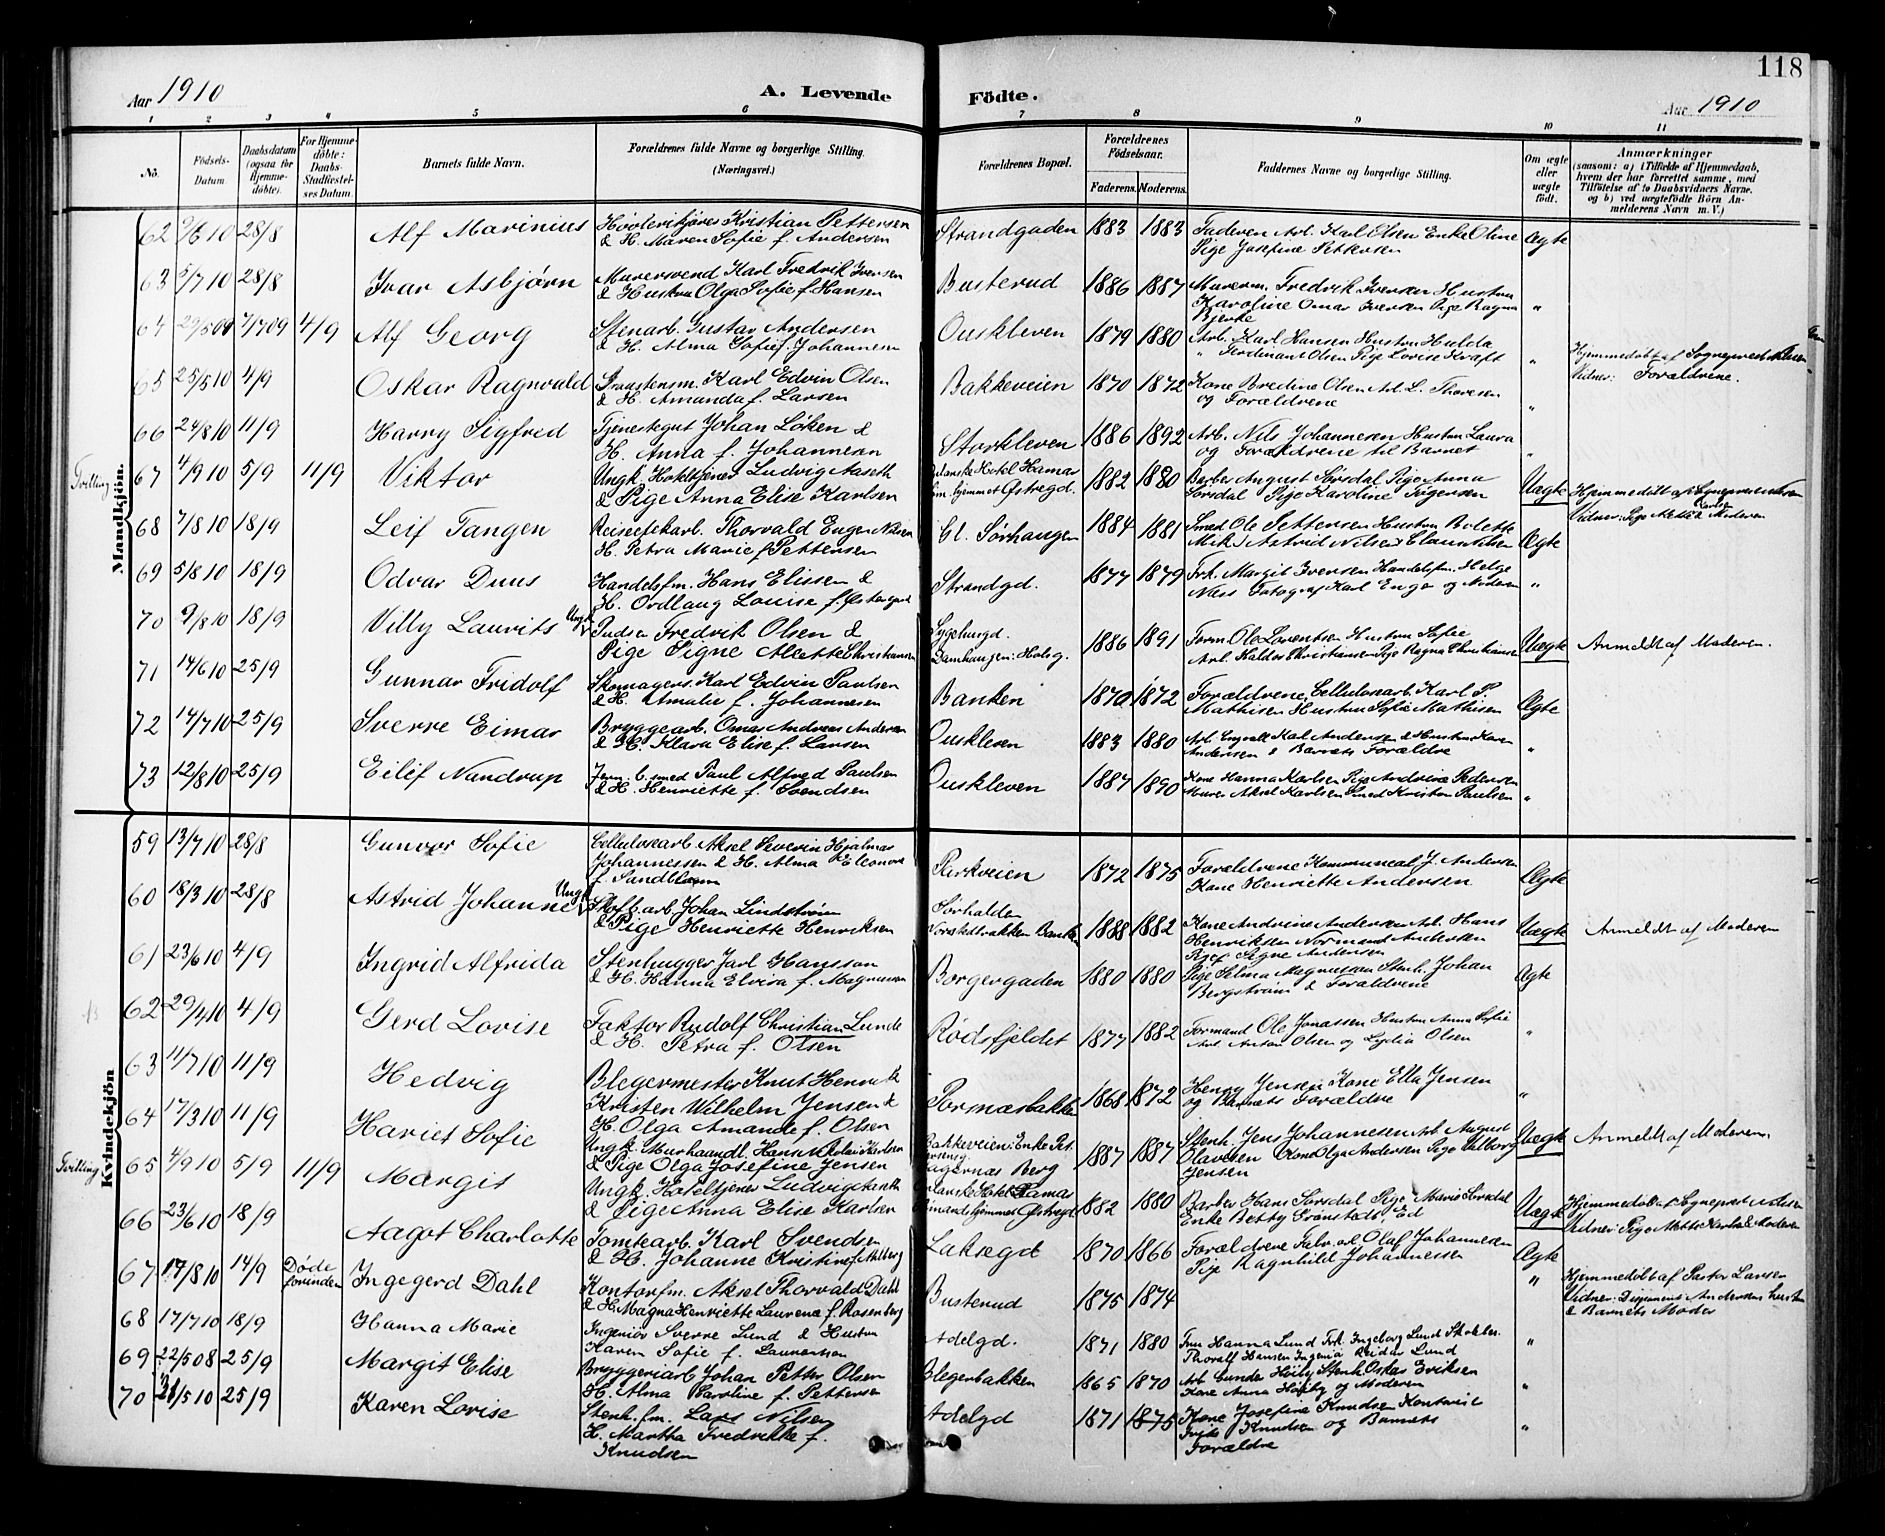 118
Aar 1910
A. Levende
Födte.
Aar 1910
1 2 3 4 5 6 7 8 9 10 11
No.
Födsels-Datum.
Daabsdatum (ogsaa for Hjemmedöbte).
For Hjemmedöbte: Daabs-Stadfæstelses Datum.
Barnets fulde Navn.
Forældrenes fulde Navne og borgerlige Stilling.
(Næringsvei.)
Forældrenes Bopæl.
Forældrenes Födselsaar.
Faderens. Moderens.
Faddernes Navne og borgerlige Stilling.
Om ægte eller uægte födt.
Anmærkninger
(saasom: a) i Tilfælde af Hjemmedaab, hvem der har forrettet samme, med Tilföielse af to Daabsvidners Navne, og b) ved uægtefödte Börn Anmelderens Navn m. V.)
Mandkjön.
62 9/6 10 28/8 Alf Marinius Høvlerikjører Kristian Pettersen
& H. Maren Sofie f. Andersen Strandgaden 1883 1883 Faderen Arb. Karl Olsen Enke Oline
Pige Josefine Pettersen Ægte
63 5/7 10 28/8 Ivar Asbjørn Murersvend Karl Fredrik Iversen
& Hustru Olga Sofie f. Hansen Busterud 1886 1887 Murerm. Fredrik Iversen Hustru
Karoline Omar Iversen Pige Ragna
Bjerke "
64 29/5 09 7/7 09 4/9 Alf Georg Stenarb. Gustav Andersen
& H. Alma Sofie f. Johannesen Ouskleven 1879 1880 Arb. Karl Hansen Hustru Hulda
" Ferdinant Olsen Pige Lovise Kraft " Hjemmedøbt af Sognepræst Nilsen
Vidner: Forældrene.
65 25/5 10 4/9 Oskar Ragnvald Karl Edvin Olsen
& H. Amanda f. Larsen Bakkeveien 1870 1872 Kone Bredine Olsen Arb. L. Thoresen
og Forældrene "
66 24/8 10 11/9 Harry Sigfred Tjenestegut Johan Løken &
H. Anna f. Johannesen Storkleven 1886 1892 Arb. Nils Johannesen Hustru Laura
og Forældrene til Barnet "
Tvilling 67 4/9 10 5/9 11/9 Viktor Ungk. Hoteltjener Ludvig Aaseth
& Pige Anna Elise Karlsen Hotel Hamar
Østregd. 1882 1880 Barber August Sørsdal Pige Anna
Sørsdal Pige Karoline Uægte Hjemmedøbt af Sognepræst Nilsen
Vidner: Pige Mette Karlsen & Moderen
68 7/8 10 18/9 Leif Tangen Reiseefskarb. Thorvald Eugen Nilsen
H. Petra Marie f. Pettersen Gl. Sørhaugen 1884 1881 Smed Ole Pettersen Hustru Bolette
Astrid Nilsen Nilsen Ægte
69 5/8 10 18/9 Odvar Duus Handelsfm. Hans Elissen &
H. Ordlaug Louise f. Østergaard Strandgd. 1877 1879 Frk. Margit Iversen Handelsfm. Helge
Næss Fotograf Karl Enge og Moderen "
70 9/8 10 18/9 Villy Laurits Ungk. Pudser Fredrik Olsen &
Pige Signe Alette Christiansen Sygehusgd.
Damhaugen: Holsg. 1886 1891 Form. Ole Lorentsen Hustru Sofie
Arb. Haldor Christiansen Pige Ragna Christiansen Uægte Anmeldt af Moderen.
71 14/6 10 25/9 Gunnar Fridolf Skomagers. Karl Edvin Paulsen
& H. Amalie f. Johannesen Banken 1870 1872 Forældrene, Cellulosearb. Karl P.
Mathisen Hustru Sofie Mathisen Ægte
72 14/7 10 25/9 Sverre Eimar Bryggearb. Omar Andreas Andersen
& H. Klara Elise f. Larsen Ouskleven 1883 1880 Arb. Karl Andersen & Hustru Karen
Andersen & Barnets Forældre "
73 12/8 10 25/9 Eilef Nandrup Jern. b. smed Paul Alfred Paulsen
& H. Henriette f. Svendsen Ouskleven 1887 1890 Kone Hanna Karlsen Pige Andrine Pedersen
Murer Aksel Karlsen Smed Kristen Paulsen "
Kvindekjön
59 13/7 10 28/8 Gunvor Sofie Cellulosearb Aksel Severin Hjalmar
Johannessen & H. Alma Eleonora
f. Sandblaam Parkveien 1872 1875 Forældrene Kommuneal J. Andersen
Kone Henriette Andersen Ægte
60 18/3 10 28/8 Astrid Johanne Ungk. Skofb. arb. Johan Lindstrøm
& Pige Henriette Henriksen Sørhalden
Banken 1888 1882 Kone Andrine Andersen Arb. Hans
Henriksen Normand Andersen
Pige Signe Andersen Uægte Anmeldt af Moderen
61 23/6 10 4/9 Ingrid Alfrida Stenhugger Jarl Hansson
& H. Hanna Elvira f. Magnusson Borgergaden 1880 1880 Pige Selma Magnusson Stenh. Johan
Bergstrøm & Forældrene Ægte
62 29/4 10 4/9 Gerd Lovise Faktor Rudolf Christian Lunde
& H. Petra f. Olsen Rødsfjeldet 1877 1882 Formand Ole Jonassen Hustru Anna Sofie
Arb. Anton Olsen og Lydia Olsen "
63 11/7 10 11/9 Hedvig Blegermester Knut Henrik
Kristen Wilhelm Jensen &
H. Olga Amande f. Olsen Pormæsbakken 1868 1872 Henry Jensen Kone Ella Jensen
og Barnets Forældre "
64 17/3 10 11/9 Hariet Sofie Ungk. Murhaandl. Hans Nikolai Karlsen
& Pige Olga Josefine Jensen Bakkeveien: Enke
Berg 1887 1887 Stenh. Jens Johannesen Arb August
Olavesen Kone Olga Andersen Pige Valborg
Jensen Uægte Anmeldt af Moderen.
Tvilling 65 4/9 10 5/9 11/9 Margit Ungk. Hoteltjener Ludvig Aaseth
& Pige Anna Elise Karlsen Hotel Hamar
Østregd 1882 1880 Barber Hans Sørsdal Pige Marie Sørsdal
Enke Betty Grønsteds, Ed Uægte Hjemmedøbt af Sognepræst Nilsen
Vidner: Pige Mette Karlsen & Moderen
66 23/6 10 18/9 Aagot Charlotte Tomtearb. Karl Svendsen
& H. Johanne Kristine f. Aalberg Laksegd 1870 1866 Forældrene Fabr. arb Olaf Johannesen
Pige Ragnhild Johannessen Ægte
67 17/8 10 14/9 Døde forinden Ingegerd Dahl Kontorfm. Aksel Thorvald Dahl
& H. Magna Henriette Laurence f. Rosenberg Busterud 1875 1874 " Hjemmedøbt af Pastor Larsen
Vidner: Andersens hustru
& Barnets Moder
68 17/7 10 18/9 Hanna Marie Ingeniør Sverre Lund & Hustru
Karen Sofie f. Laurentsen Adelgd. 1871 1880 Fru Hanna Lund Frk. Ingeborg Lund
Thoralf Hansen Ingeniør Reidar Lund "
69 22/5 08 25/9 Margit Elise Bryggeriarb Johan Petter Olsen
H. Alma Karoline f. Pettersen Blegerbakken 1865 1870 Arb Gunder Høiby Stenh. Oskar Eriksen
Kone Anna Høiby og Moderen "
70 21/5 10 25/9 Karen Lovise Stenh. fm. Lars Nilsen
H. Martha Fredrikke f.
Knudsen Adelgd 1871 1875 Kone Josefine Knudsen Kontorist
Knudsen og Barnets
Forældre "